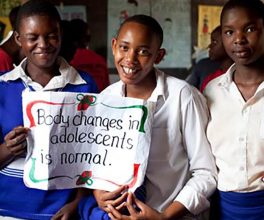 Body changes in
adolescents
is normal.